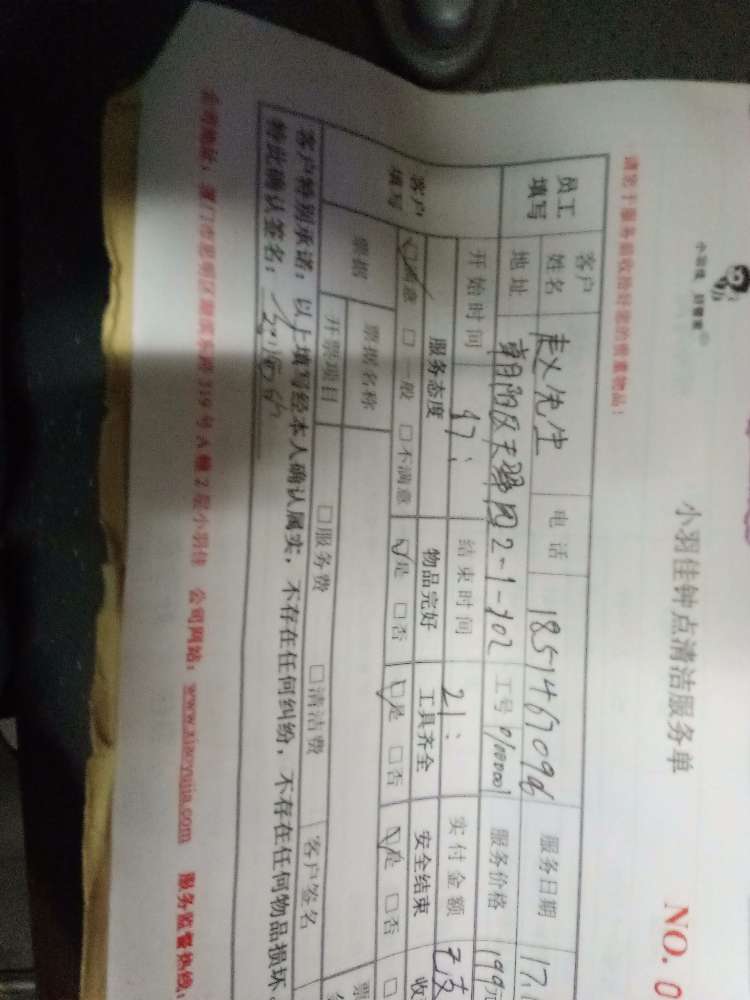 小羽佳 好管家
小羽佳钟点清洁服务单
NO. 0
请您于服务前收拾好您的贵重物品!
员工填写
客户姓名 赵先生 电话 1851467096 服务日期 17.
地址 朝阳区天骄园2-1-702 工号 服务价格 199元
开始时间 17: 结束时间 21: 实付金额 已支
客户填写
服务态度 物品完好 工具齐全 安全结束 收
☑满意 □一般 □不满意 ☑是 □否 ☑是 □否 ☑是 □否 □
票据 票据名称 票
开票项目 □服务费 □清洁费 客户签名
客户特别承诺:以上填写经本人确认属实,不存在任何纠纷,不存在任何物品损坏。
特此确认签名:
公司地址:厦门市思明区 319号A幢2层小羽佳 公司网站:www.xiaoyujia.com 服务监督热线: